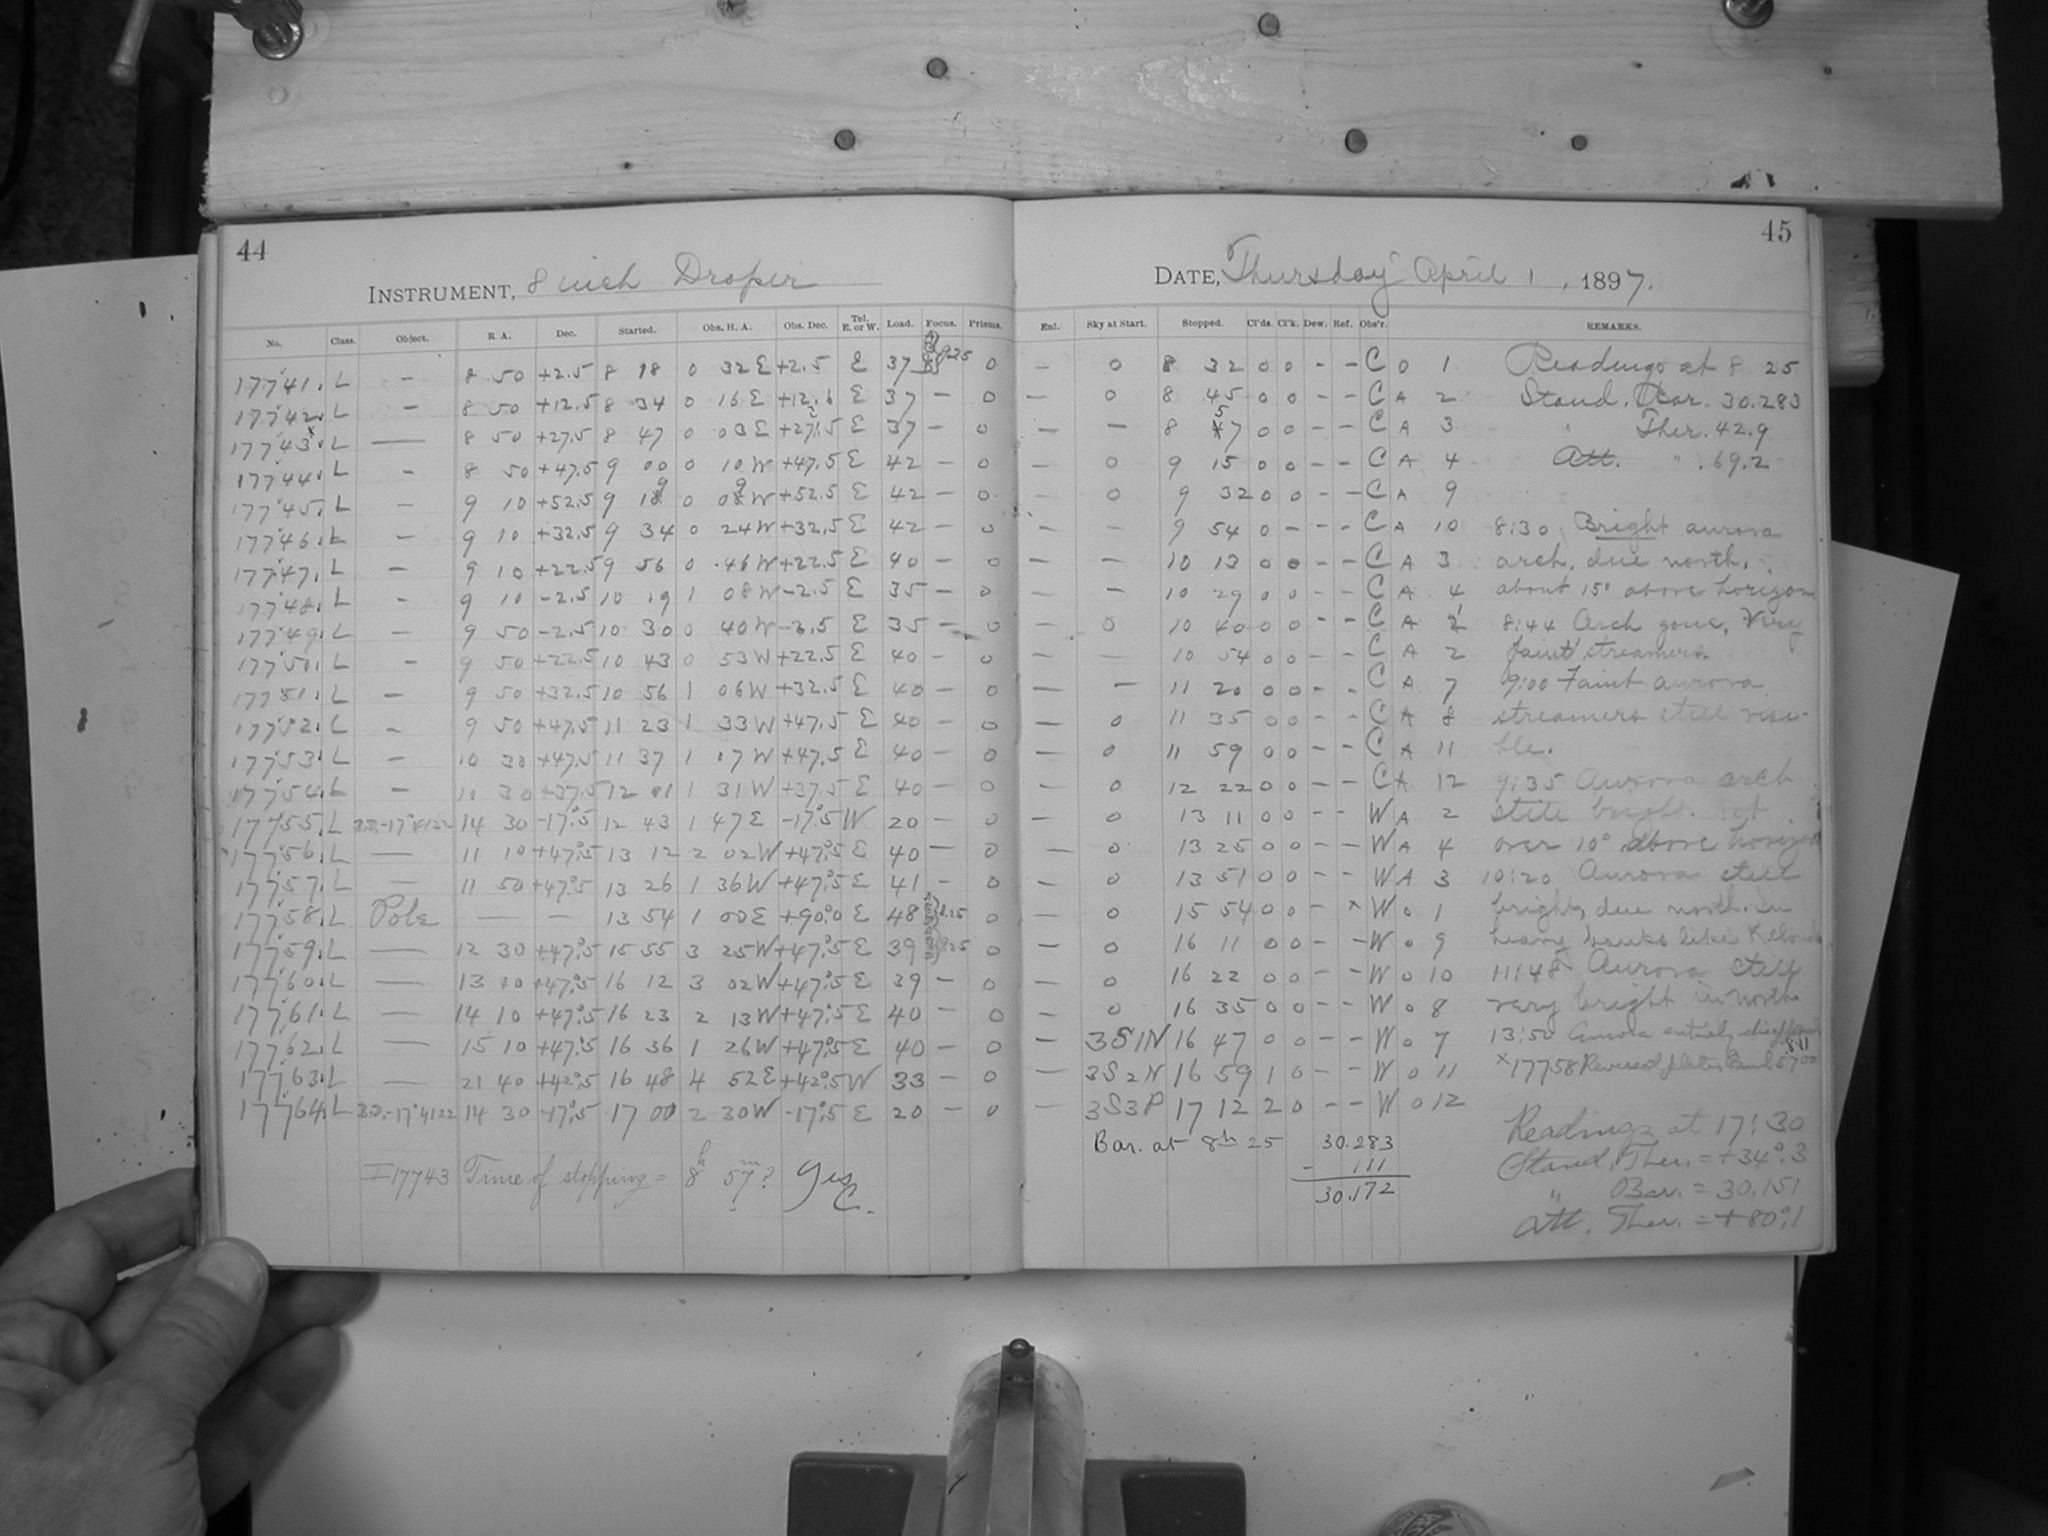 44
INSTRUMENT, 8 inch Draper
No. Class. Object. R. A. Dec. Started. Obs. H. A. Obs. Dec. Tel. E. or W. Load. Focus. Prisms.
17741. L - 8 50 +2.5 8 18 0 32 E +2.5 E 37 925 0
17742. L - 8 50 +12.5 8 34 0 16 E E 37 - 0
17743. L — 8 50 +27.5 8 47 0 03 E +27.5 E 37 - 0
17744. L - 8 50 +47.5 9 00 0 10 W +47.5 E 42 - 0
17745. L - 9 10 +52.5 9 19 0 09 W +52.5 E 42 - 0
17746. L - 9 10 +32.5 9 34 0 24 W +32.5 E 42 - 0
17747. L - 9 10 +22.5 9 56 0 46 W +22.5 E 40 - 0
17748. L - 9 10 -2.5 10 19 1 08 W -2.5 E 35 - 0
17749. L - 9 50 -2.5 10 30 0 40 W -2.5 E 35 - 0
17750. L - 9 50 +22.5 10 43 0 53 W +22.5 E 40 - 0
17751. L - 9 50 +32.5 10 56 1 06 W +32.5 E 40 - 0
17752. L - 9 50 +47.5 11 23 1 33 W +47.5 E 40 - 0
17753. L - 10 30 +47.5 11 37 1 07 W +47.5 E 40 - 0
17754. L - 10 30 +37.5 12 01 1 31 W +37.5 E 40 - 0
17755. L -17°4122 14 30 -17°.5 12 43 1 47 E -17°.5 W 20 - 0
17756. L — 11 10 +47°.5 13 12 2 02 W +47°.5 E 40 - 0
17757. L — 11 50 +47°.5 13 26 1 36 W +47°.5 E 41 - 0
17758. L Pole — — 13 54 1 00 E +90°.0 E 48 0
17759. L — 12 30 +47°.5 15 55 3 25 W +47°.5 E 39 925 0
17760. L — 13 10 +47°.5 16 12 3 02 W +47°.5 E 39 - 0
17761. L — 14 10 +47°.5 16 23 2 13 W +47°.5 E 40 - 0
17762. L — 15 10 +47°.5 16 36 1 26 W +47°.5 E 40 - 0
17763. L — 21 40 +42°.5 16 48 4 52 E +42°.5 W 33 - 0
17764. L -17°4122 14 30 -17°.5 17 00 2 30 W -17°.5 E 20 - 0
I 17743 Time of stopping = 8h 57m? Yes
C.
45
DATE, Thursday April 1, 1897.
Enl. Sky at Start. Stopped. Cl'ds. Cl'k. Dew. Ref. Obs'r. REMARKS.
- 0 8 32 0 0 - - C 0 1 Readings at 8 25
- 0 8 45 0 0 - - C A 2 Stand. Bar. 30.283
- - 8 57 0 0 - - C A 3 " Ther. 42.9
- 0 9 15 0 0 - - C A 4 Att. " 69.2
- 0 9 32 0 0 - - C A 9
- - 9 54 0 - - - C A 10 8:30 Bright aurora
- - 10 13 0 0 - - C A 3 arch, due north,
- - 10 29 0 0 - - C A 4 about 15° above horizon
- 0 10 40 0 0 - - C A 1 8:44 Arch gone, Very
- - 10 54 0 0 - - C A 2 faint streamers.
- - 11 20 0 0 - - C A 7 9:00 Faint aurora
- 0 11 35 0 0 - - C A 8 streamers still visi-
- 0 11 59 0 0 - - C A 11 ble.
- 0 12 22 0 0 - - C A 12 9:35 Aurora arch
- 0 13 11 0 0 - - W A 2 still bright. Not
- 0 13 25 0 0 - - W A 4 over 10° above horizon
- 0 13 51 0 0 - - W A 3 10:20 Aurora still
- 0 15 54 0 0 - x W 0 1 bright, due north. In
- 0 16 11 0 0 - - W 0 9 heavy banks like
- 0 16 22 0 0 - - W 0 10 11:48 Aurora still
- 0 16 35 0 0 - - W 0 8 very bright in north
- 3S1N 16 47 0 0 - - W 0 7 13:50 Aurora entirely
- 3S2N 16 59 1 0 - - W 0 11 x17758 Reversed
- 3S3P 17 12 2 0 - - W 0 12
Bar. at 8h 25 30.283
- 111
30.172
Readings at 17:30
Stand. Ther. = +34°.3
" Bar. = 30.151
Att. Ther. = +80°.1